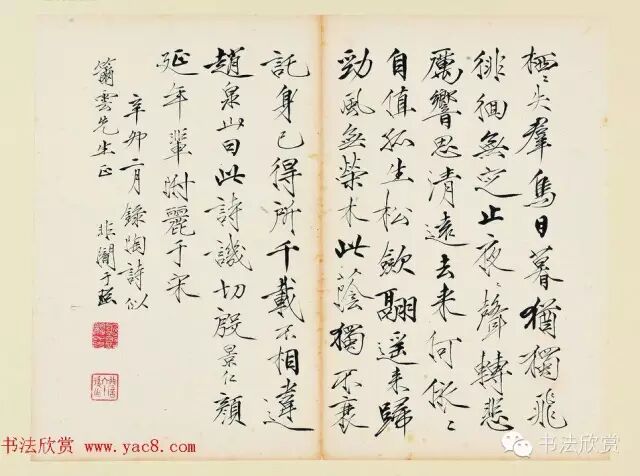 栖〻失羣鳥日暮猶獨飛
徘徊無定止夜〻聲轉悲
厲響思清遠去來何依〻
自值孤生松歛翮遥來歸
勁風無榮木此蔭獨不衰
託身已得所千載不相違
趙泉山曰此詩譏切殷景仁顔
延年輩附麗于宋
辛卯二月錄陶詩似
簫雲先生正
非闇于照
书法欣赏 www.yac8.com
书法欣赏